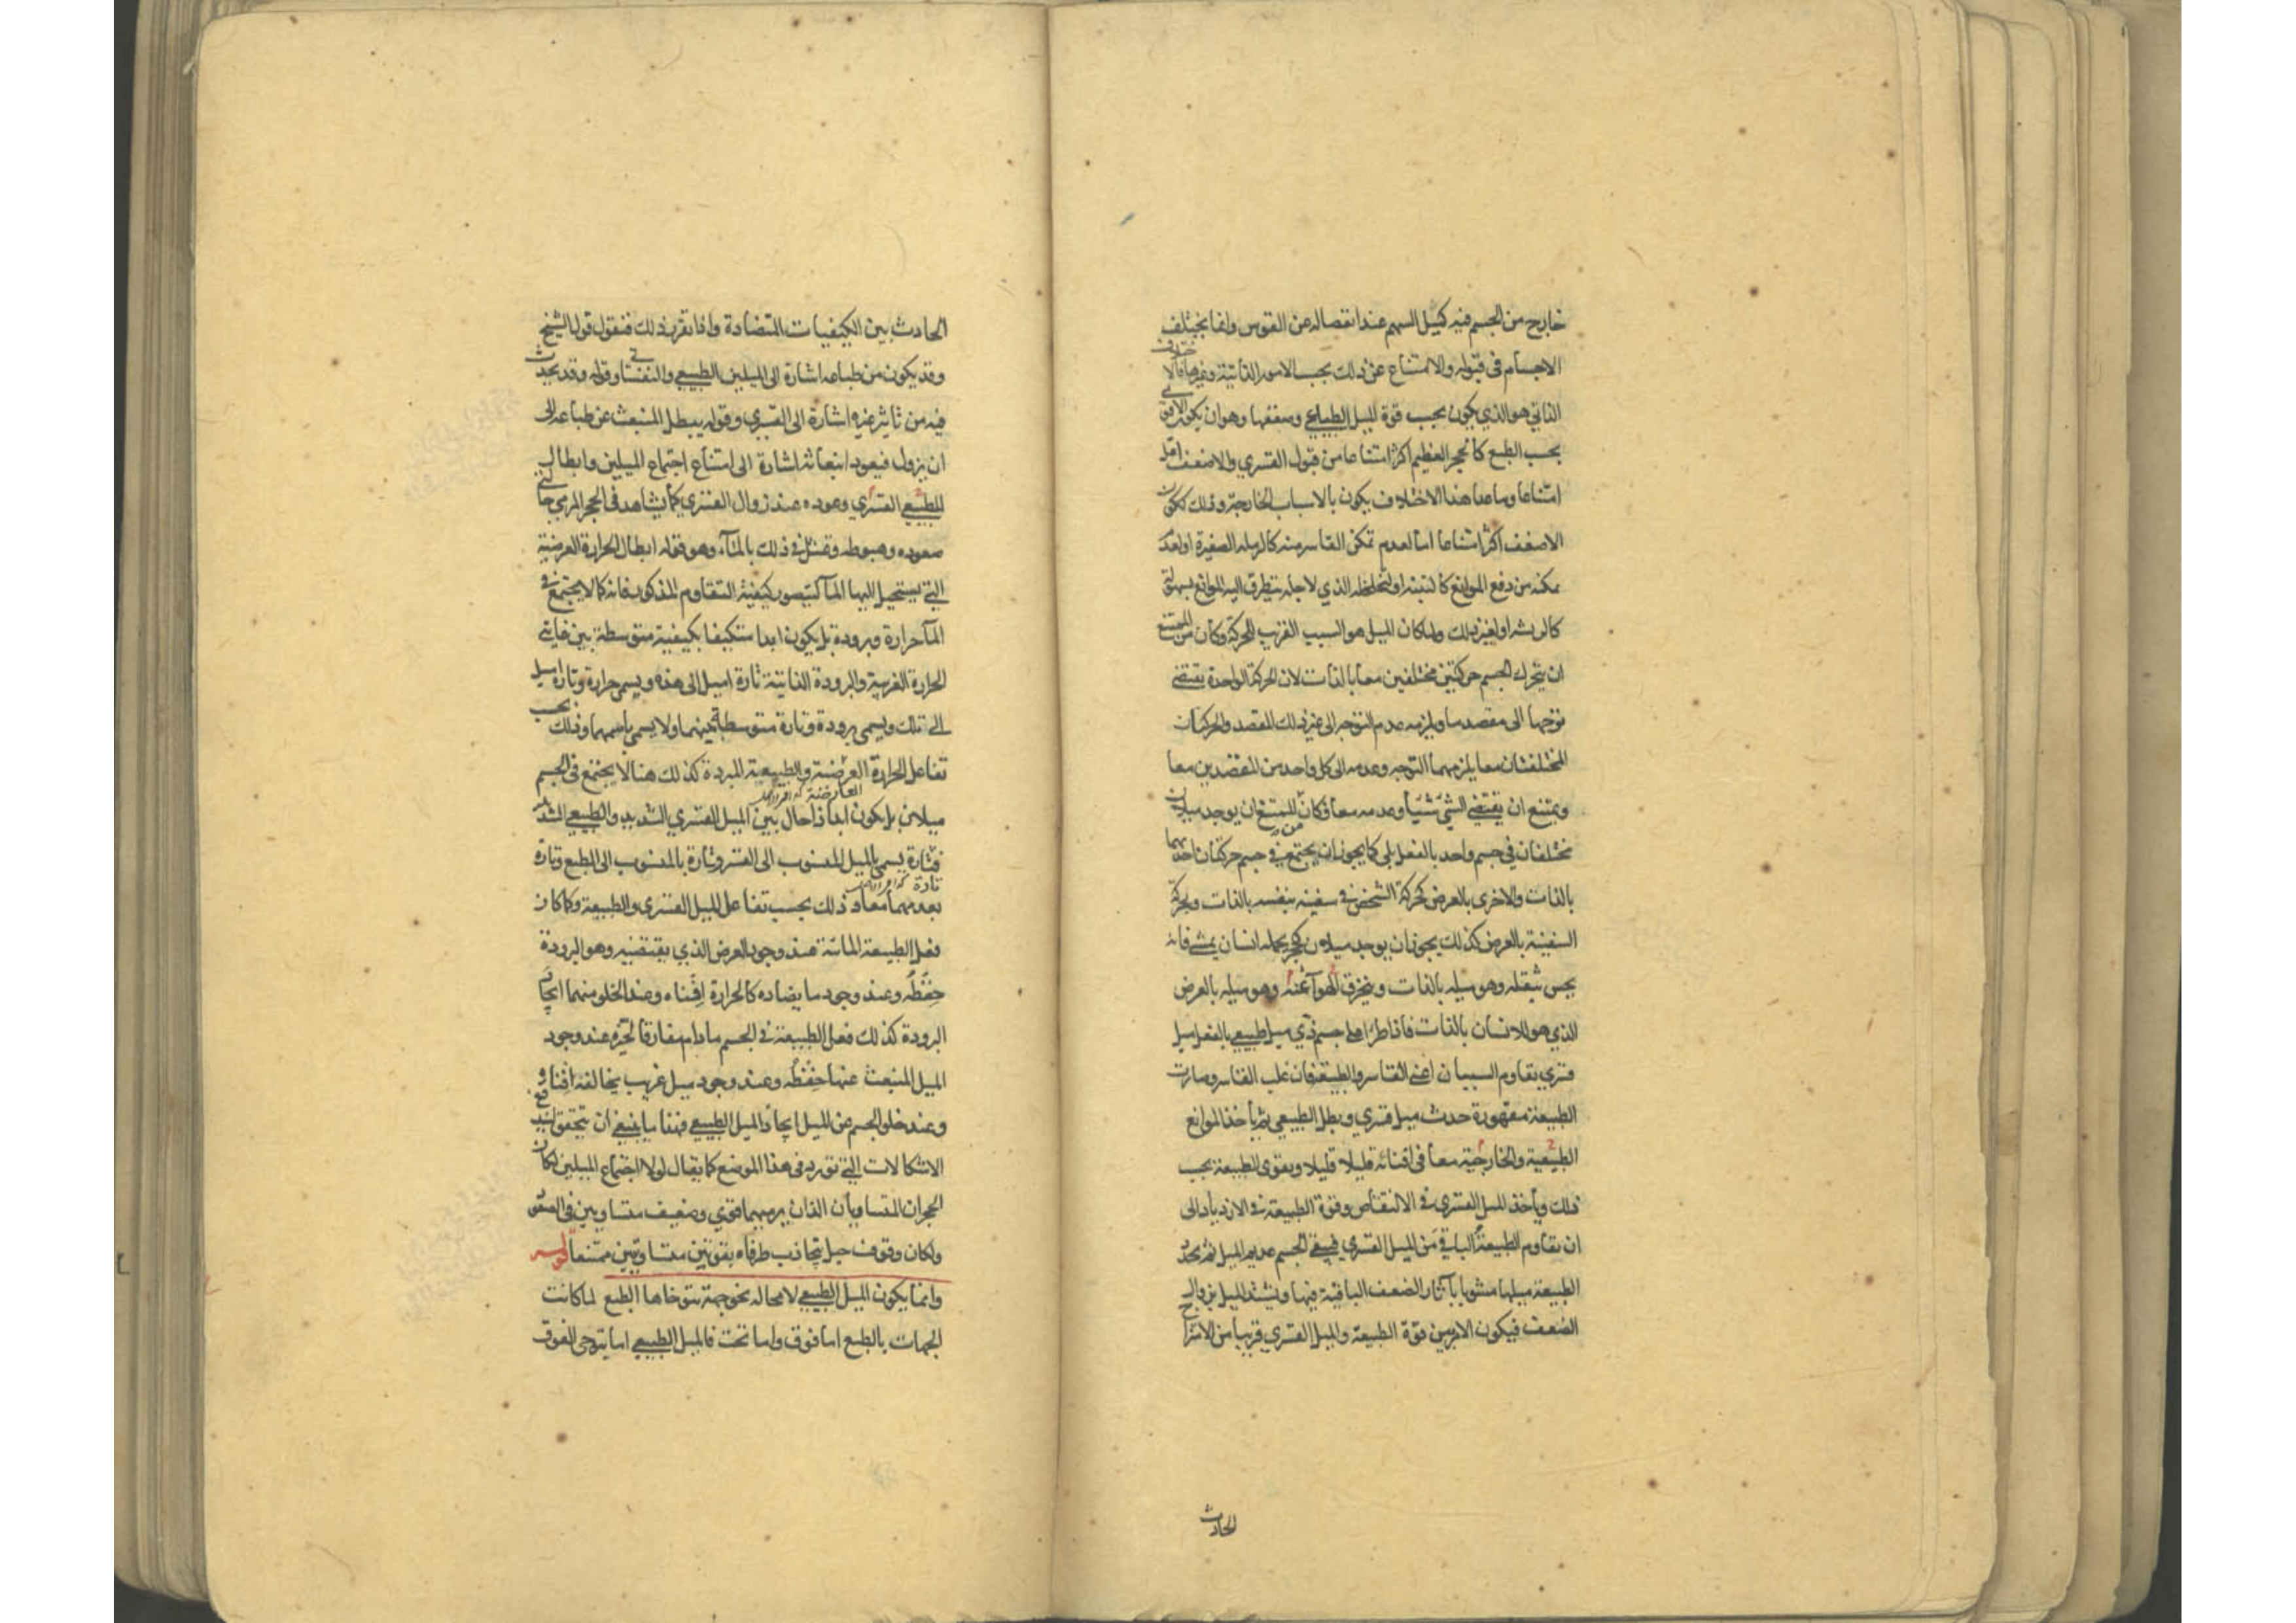 خارج من الجسم فيه كميل السهم عند انفصاله عن القوس وانما يختلف
الاجسام فى قبوله والامتناع عن ذلك بحسب الامور الذاتية وغيرها فالاختلاف
الذاتي هو الذي يكون بحسب قوة الميل الطبيعي وضعفها وهو ان يكون الاقوى
بحسب الطبع كالحجر العظيم اكثر امتناعا من قبول القسري والاضعف اقل
امتناعا وما عدا هذا الاختلاف يكون بالاسباب الخارجة وذلك ككون
الاضعف اكثر امتناعا اما لعدم تمكن القاسر منه كالرملة الصغيرة او لعدم
تمكنه من دفع الموانع كالتبنة او لتخلخله الذي لاجله يتطرق اليه الموانع بسهولة
كالريشة او لغير ذلك ولما كان الميل هو السبب القريب للحركة وكان من الممتنع
ان يتحرك الجسم حركتين مختلفين معا بالذات لان الحركة الواحدة يقتضى
توجها الى مقصد ما ويلزمه عدم التوجه الى غير ذلك المقصد والحركتان
المختلفتان معا يلزمهما التوجه وعدمه الى كل واحد من المقصدين معا
ويمتنع ان يقتضى الشئ شيئا وعدمه معا فكان من الممتنع ان يوجد ميلان
مختلفان في جسم واحد بالفعل بلى كما يجوز ان يجتمع في جسم حركتان احدهما
بالذات والاخرى بالعرض كحركة الشخص في سفينة بنفسه بالذات وبحركة
السفينة بالعرض كذلك يجوز ان يوجد ميلان كحجر يحمله انسان يمشي فانه
يحس بثقله وهو ميله بالذات وينخرق الهوآء عنه وهو ميله بالعرض
الذي هو للانسان بالذات فاذا طرأ على جسم ذي ميل طبيعي بالفعل ميل
قسري تقاوم السببان اعني القاسر والطبيعة فان غلب القاسر وصارت
الطبيعة مقهورة حدث ميل قسري وبطل الطبيعي ثم يأخذ الموانع
الطبيعية والخارجية معا فى افنائه قليلا قليلا ويقوى الطبيعة بحسب
ذلك ويأخذ الميل القسري في الانتقاص وقوة الطبيعة في الازدياد الى
ان تقاوم الطبيعة الباقي من الميل القسري فيبقى الجسم عديم الميل ثم يجدد
الطبيعة ميلها مشوبا بآثار الضعف الباقية فيها ويشتد الميل بزوال
الضعف فيكون الامر بين قوة الطبيعة والميل القسري قريبا من الامتزاج
الحادث
الحادث بين الكيفيات المتضادة واذا تقرر ذلك فنقول قول الشيخ
وقد يكون من طباعه اشارة الى الميلين الطبيعي والنفساني وقوله وقد يحدث
فيه من تاثير غيره اشارة الى القسري وقوله يبطل المنبعث عن طباعه الى
ان يزول فيعود انبعاثه اشارة الى امتناع اجتماع الميلين وابطال
للطبيعي القسري وعوده عند زوال القسري كما يشاهد في الحجر المرمي حالتي
صعوده وهبوطه وتمثل في ذلك بالمآء وهو قوله ابطال الحرارة العرضية
التي يستحيل اليها المآ كتصور كيفية التقاوم المذكور فانه كما لا يجتمع في
المآ حرارة وبرودة بل يكون ابدا متكيفا بكيفية متوسطة بين غايتي
الحرارة الغريبة والبرودة الذاتية تارة اميل الى هذه ويسمى حرارة وتارة اميل
الى تلك ويسمى برودة وتارة متوسطة بينهما ولا يسمى باسمهما وذلك بحسب
تفاعل الحرارة العرضية والطبيعة المبردة كذلك هنا لا يجتمع في الجسم
العارضية
ميلان بل يكون ابدا ذا حال بين الميل القسري الشديد والطبيعي الشديد
فتارة يسمى بالميل المنسوب الى القسر وتارة بالمنسوب الى الطبع وتارة
تارة
بعدمهما معا وذلك بحسب تفاعل الميل القسري والطبيعة وكما كان
فعل الطبيعة المائية عند وجود العرض الذي يقتضيه وهو البرودة
حفظه وعند وجود ما يضاده كالحرارة افناه وعند الخلو منهما ايجاد
البرودة كذلك فعل الطبيعة في الجسم ما دام مفارقا لحيزه عند وجود
الميل المنبعث عنها حفظه وعند وجود ميل غريب يخالفه افناؤه
وعند خلو الجسم عن الميل ايجاد الميل الطبيعي فهذا ما ينبغي ان يتحقق ليندفع
الاشكالات التي تورد في هذا الموضع كما يقال لولا اجتماع الميلين لكان
الحجران المتساويان اللذان يرميهما قوي وضعيف متساويين فى الصعود
ولكان وقوف حبل يتجاذب طرفاه بقوتين متساويتين ممتنعا قوله
وانما يكون الميل الطبيعي لا محالة نحو جهة يتوخاها الطبع لما كانت
الجهات بالطبع اما فوق واما تحت فالميل الطبيعي اما يتوخى الفوق